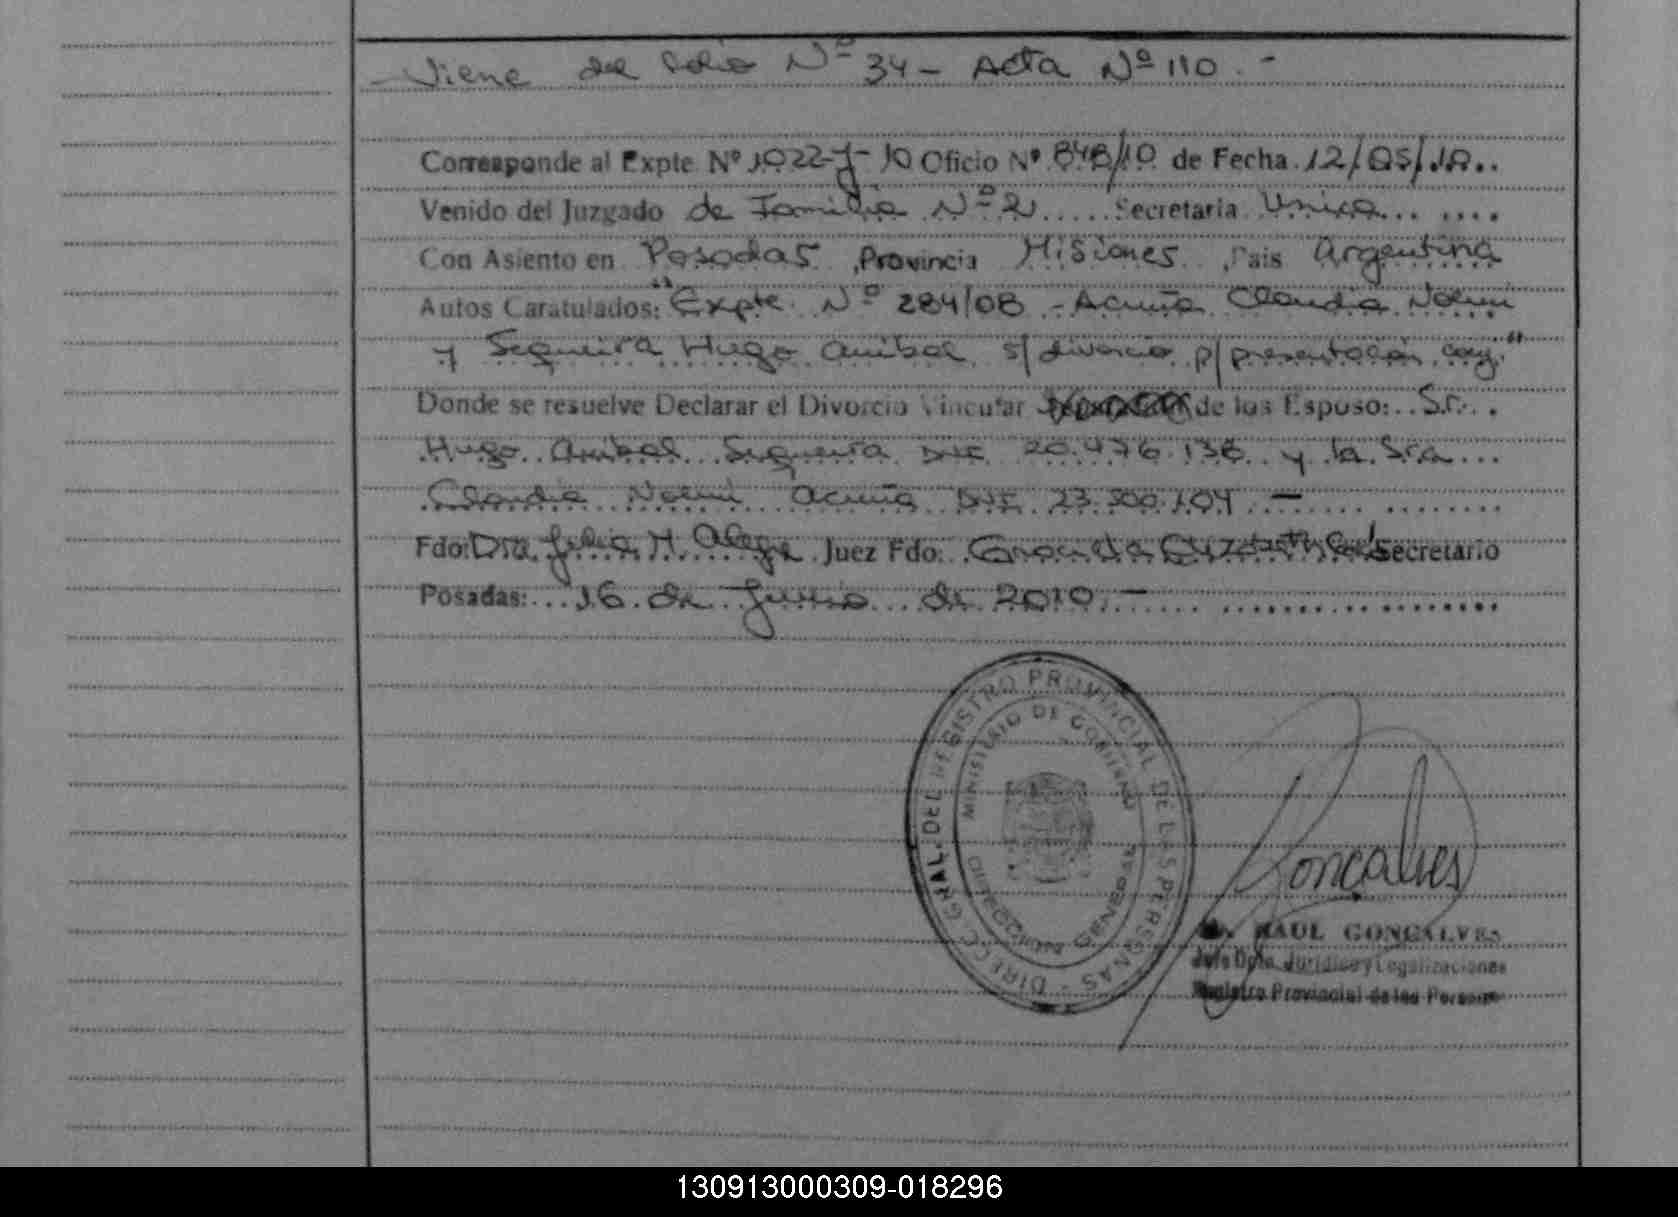 - Viene del folio Nº 34 - Acta Nº 110. -
Corresponde al Expte. Nº 1022-J-10 Oficio Nº 848/10 de Fecha 12/05/10..
Venido del Juzgado de Familia Nº 2..... Secretaria Unica... ....
Con Asiento en Posadas ,Provincia Misiones ,Pais Argentina
Autos Caratulados: "Expte. Nº 284/08 - Acuña Claudia Noemi
y Sequeira Hugo Anibal s/divorcio p/presentación conj."
Donde se resuelve Declarar el Divorcio Vincular de los Esposo: Sr. .
Hugo Anibal Sequeira DNI 20.476.138 y la Sra...
Claudia Noemi Acuña DNI 23.300.104 -
Fdo: Dra. Julia M. Juez Fdo: Secretario
Posadas:...16 de Junio de 2010. -
DIREC. GRAL. DEL REGISTRO PROVINCIAL DE LAS PERSONAS -
MINISTERIO DE GOBIERNO
DIRECCION GENERAL
Gonçalves
RAUL GONCALVES
Jefe Dpto. Juridico y Legalizaciones
Registro Provincial de las Personas
130913000309-018296